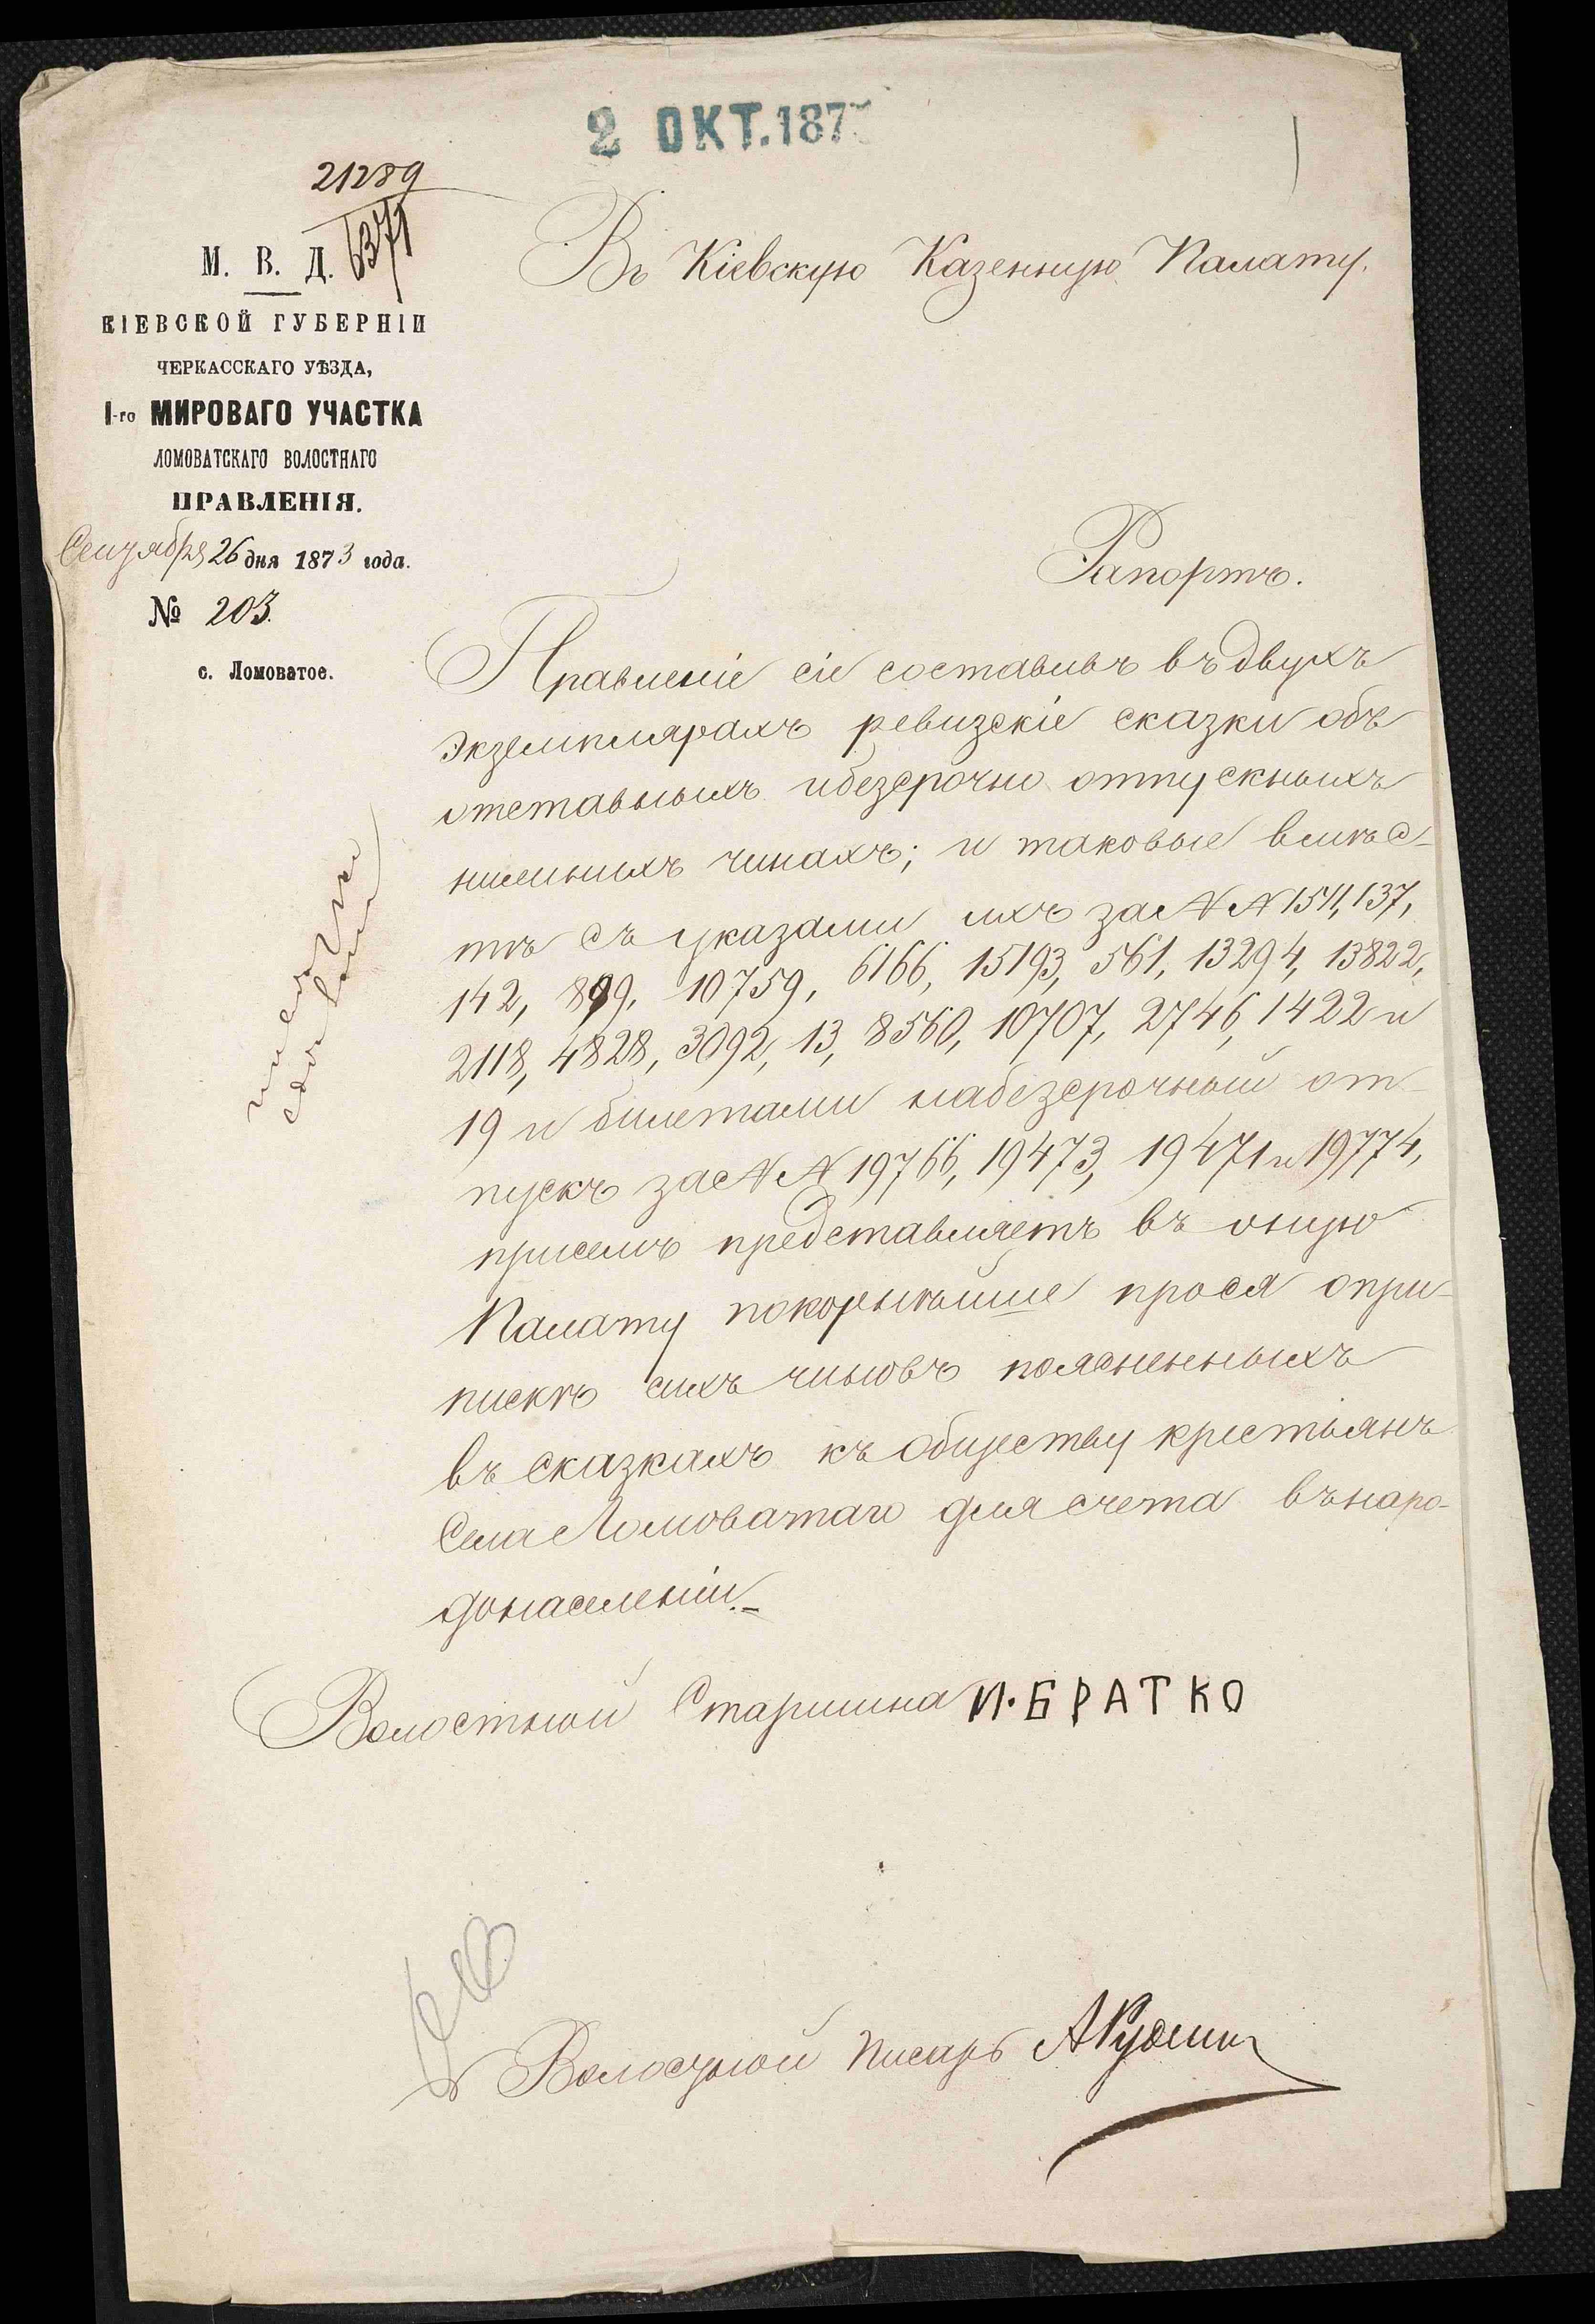 2 ОКТ. 187
21289
6371
М. В. Д.
КІЕВСКОЙ ГУБЕРНІИ
ЧЕРКАССКАГО УѢЗДА,
1-го МИРОВАГО УЧАСТКА
ЛОМОВАТСКАГО ВОЛОСТНАГО
ПРАВЛЕНІЯ.
Сентября 26 дня 1873 года.
№ 203.
с. Ломоватое.
Въ Кіевскую Казенную Палату.
Рапортъ.
Правленіе сіе составивъ въ двухъ
экземплярахъ ревизскіе сказки объ
отставныхъ и безсрочно отпускныхъ
нижнихъ чинахъ; и таковые вмѣс-
тѣ съ указами ихъ за №№ 1511, 137,
142, 899, 10759, 6166, 15193, 561, 13294, 13822,
2118, 4828, 3092, 13, 8560, 10707, 2746, 1422 и
19 и билетами на безсрочный от-
пускъ за №№ 19766, 19473, 19471 и 19774,
присемъ представляетъ въ оную
Палату покорнѣйше прося о при-
пискѣ сихъ чиновъ поясненныхъ
въ сказкахъ къ обществу крестьянъ
Села Ломоватаго для счета въ наро-
донаселеніи.
Волостной Старшина И. БРАТКО
Волостной Писарь